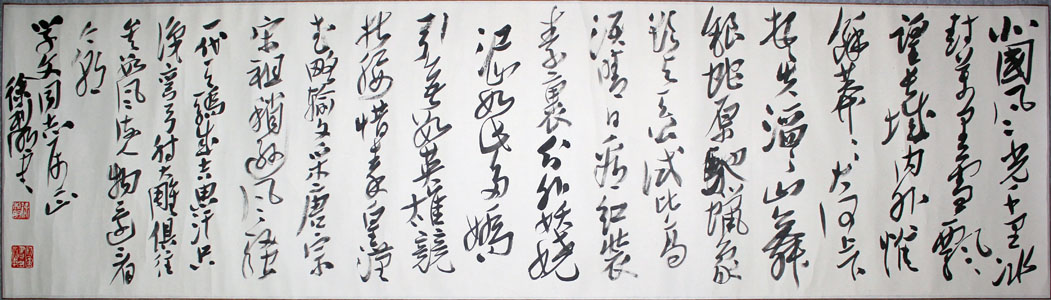 北國风光千里冰
封萬里雪飄
望長城内外惟
餘莽〻大河上下
頓失滔〻山舞
銀蛇原馳蠟象
欲与天公試比高
须晴日看红裝
素裹分外妖娆
江山如此多嬌
引無数英雄競
折腰惜秦皇漢
武略输文采唐宗
宋祖稍逊风骚
一代天骄成吉思汗只
识弯弓射大雕俱往
矣数风流人物还看
今朝
学文同志斧正
徐